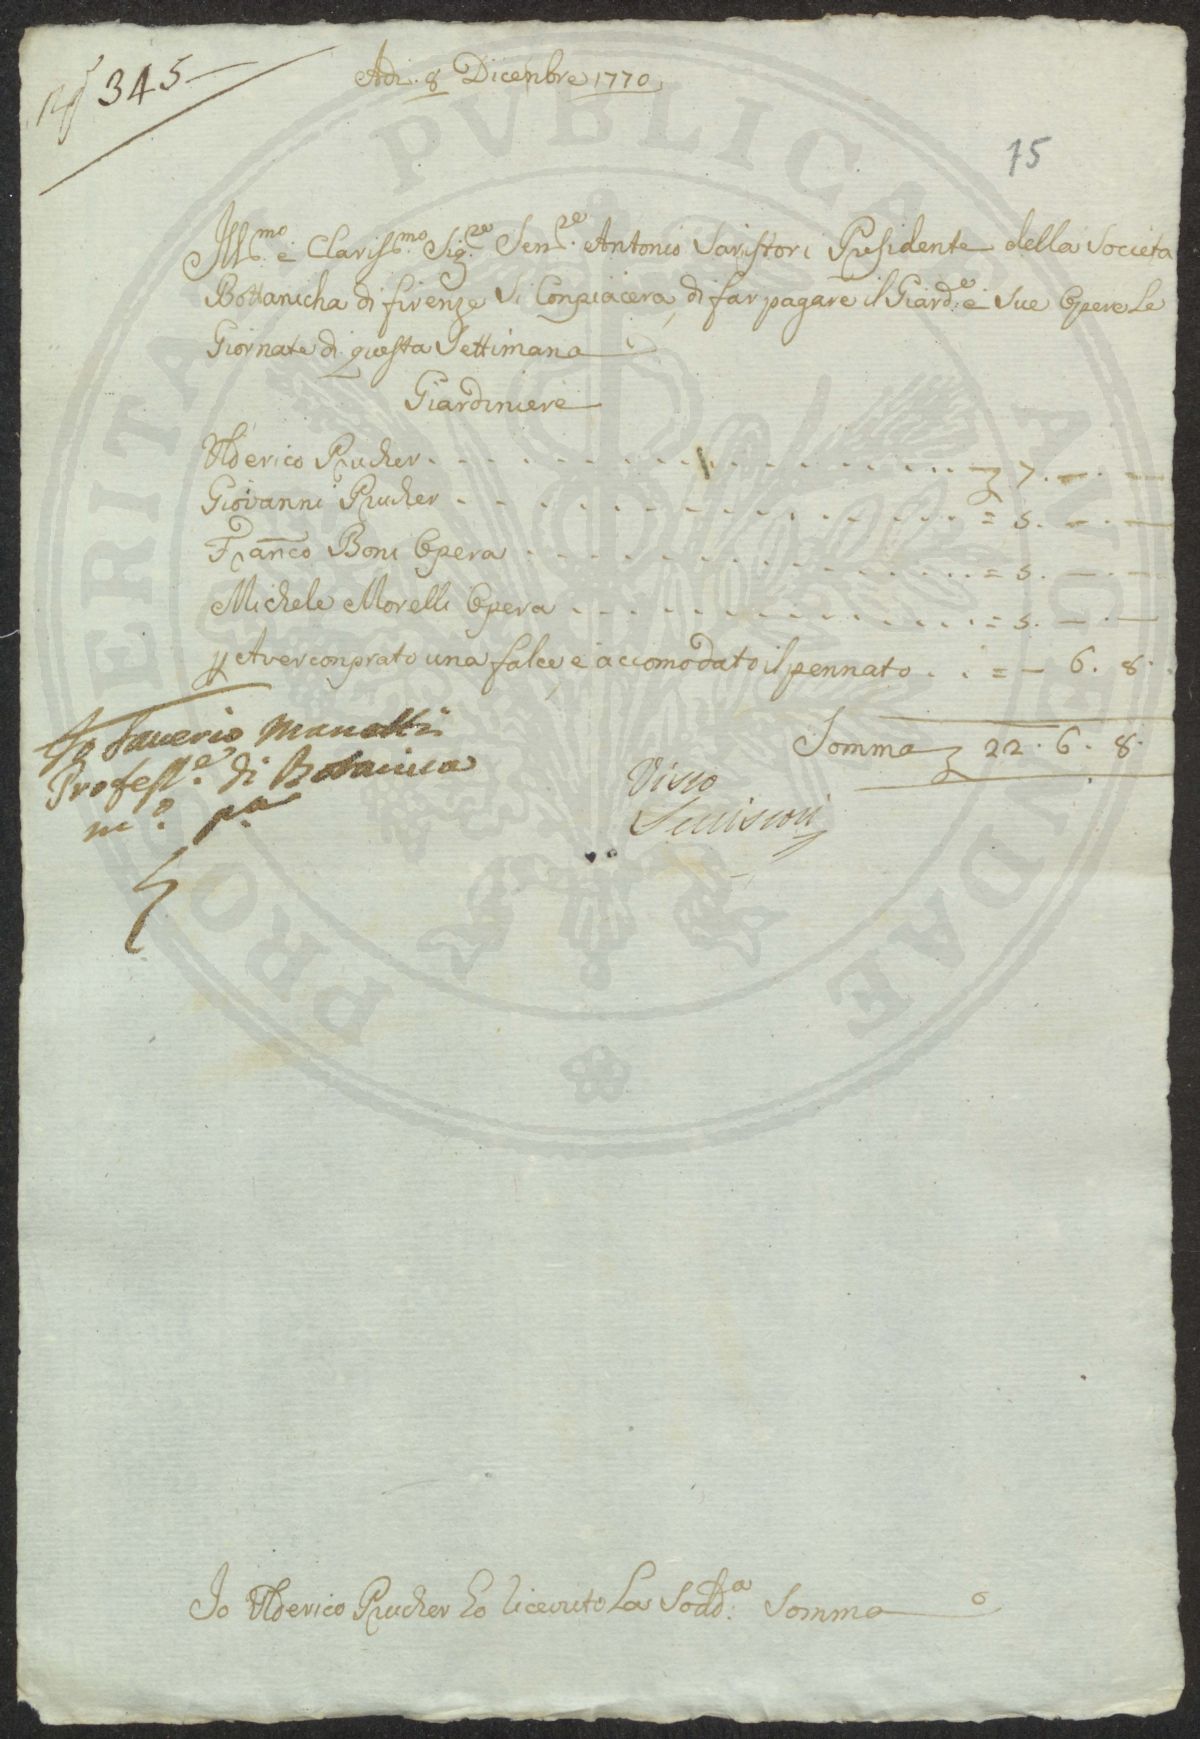 345
Adi. 8 Dicenbre 1770
15
Ill.mo e Clariss.mo Sig.re Sen.re Antonio Saristori Presidente della Societa
Bottanicha di firenze Si Conpiacera di far pagare il Giard.e e Sue Opere Le
Giornate di questa Settimana
Giardiniere
Ulderico Prucher 7. — . —
Giovanni Prucher = 5. — . —
Fran.co Boni Opera = 5. — . —
Michele Morelli Opera = 5. — . —
Aver conprato una falce, e accomodato il pennato = — 6. 8.
Somma 22. 6. 8.
Io Saverio Manetti
Profess.e di Botanica
m.o p.a
Visto
Serristori
PROSPERITATI PVBLICAE AVGENDAE
Io Ulderico Prucher ho ricevuto La Sodd.a Somma